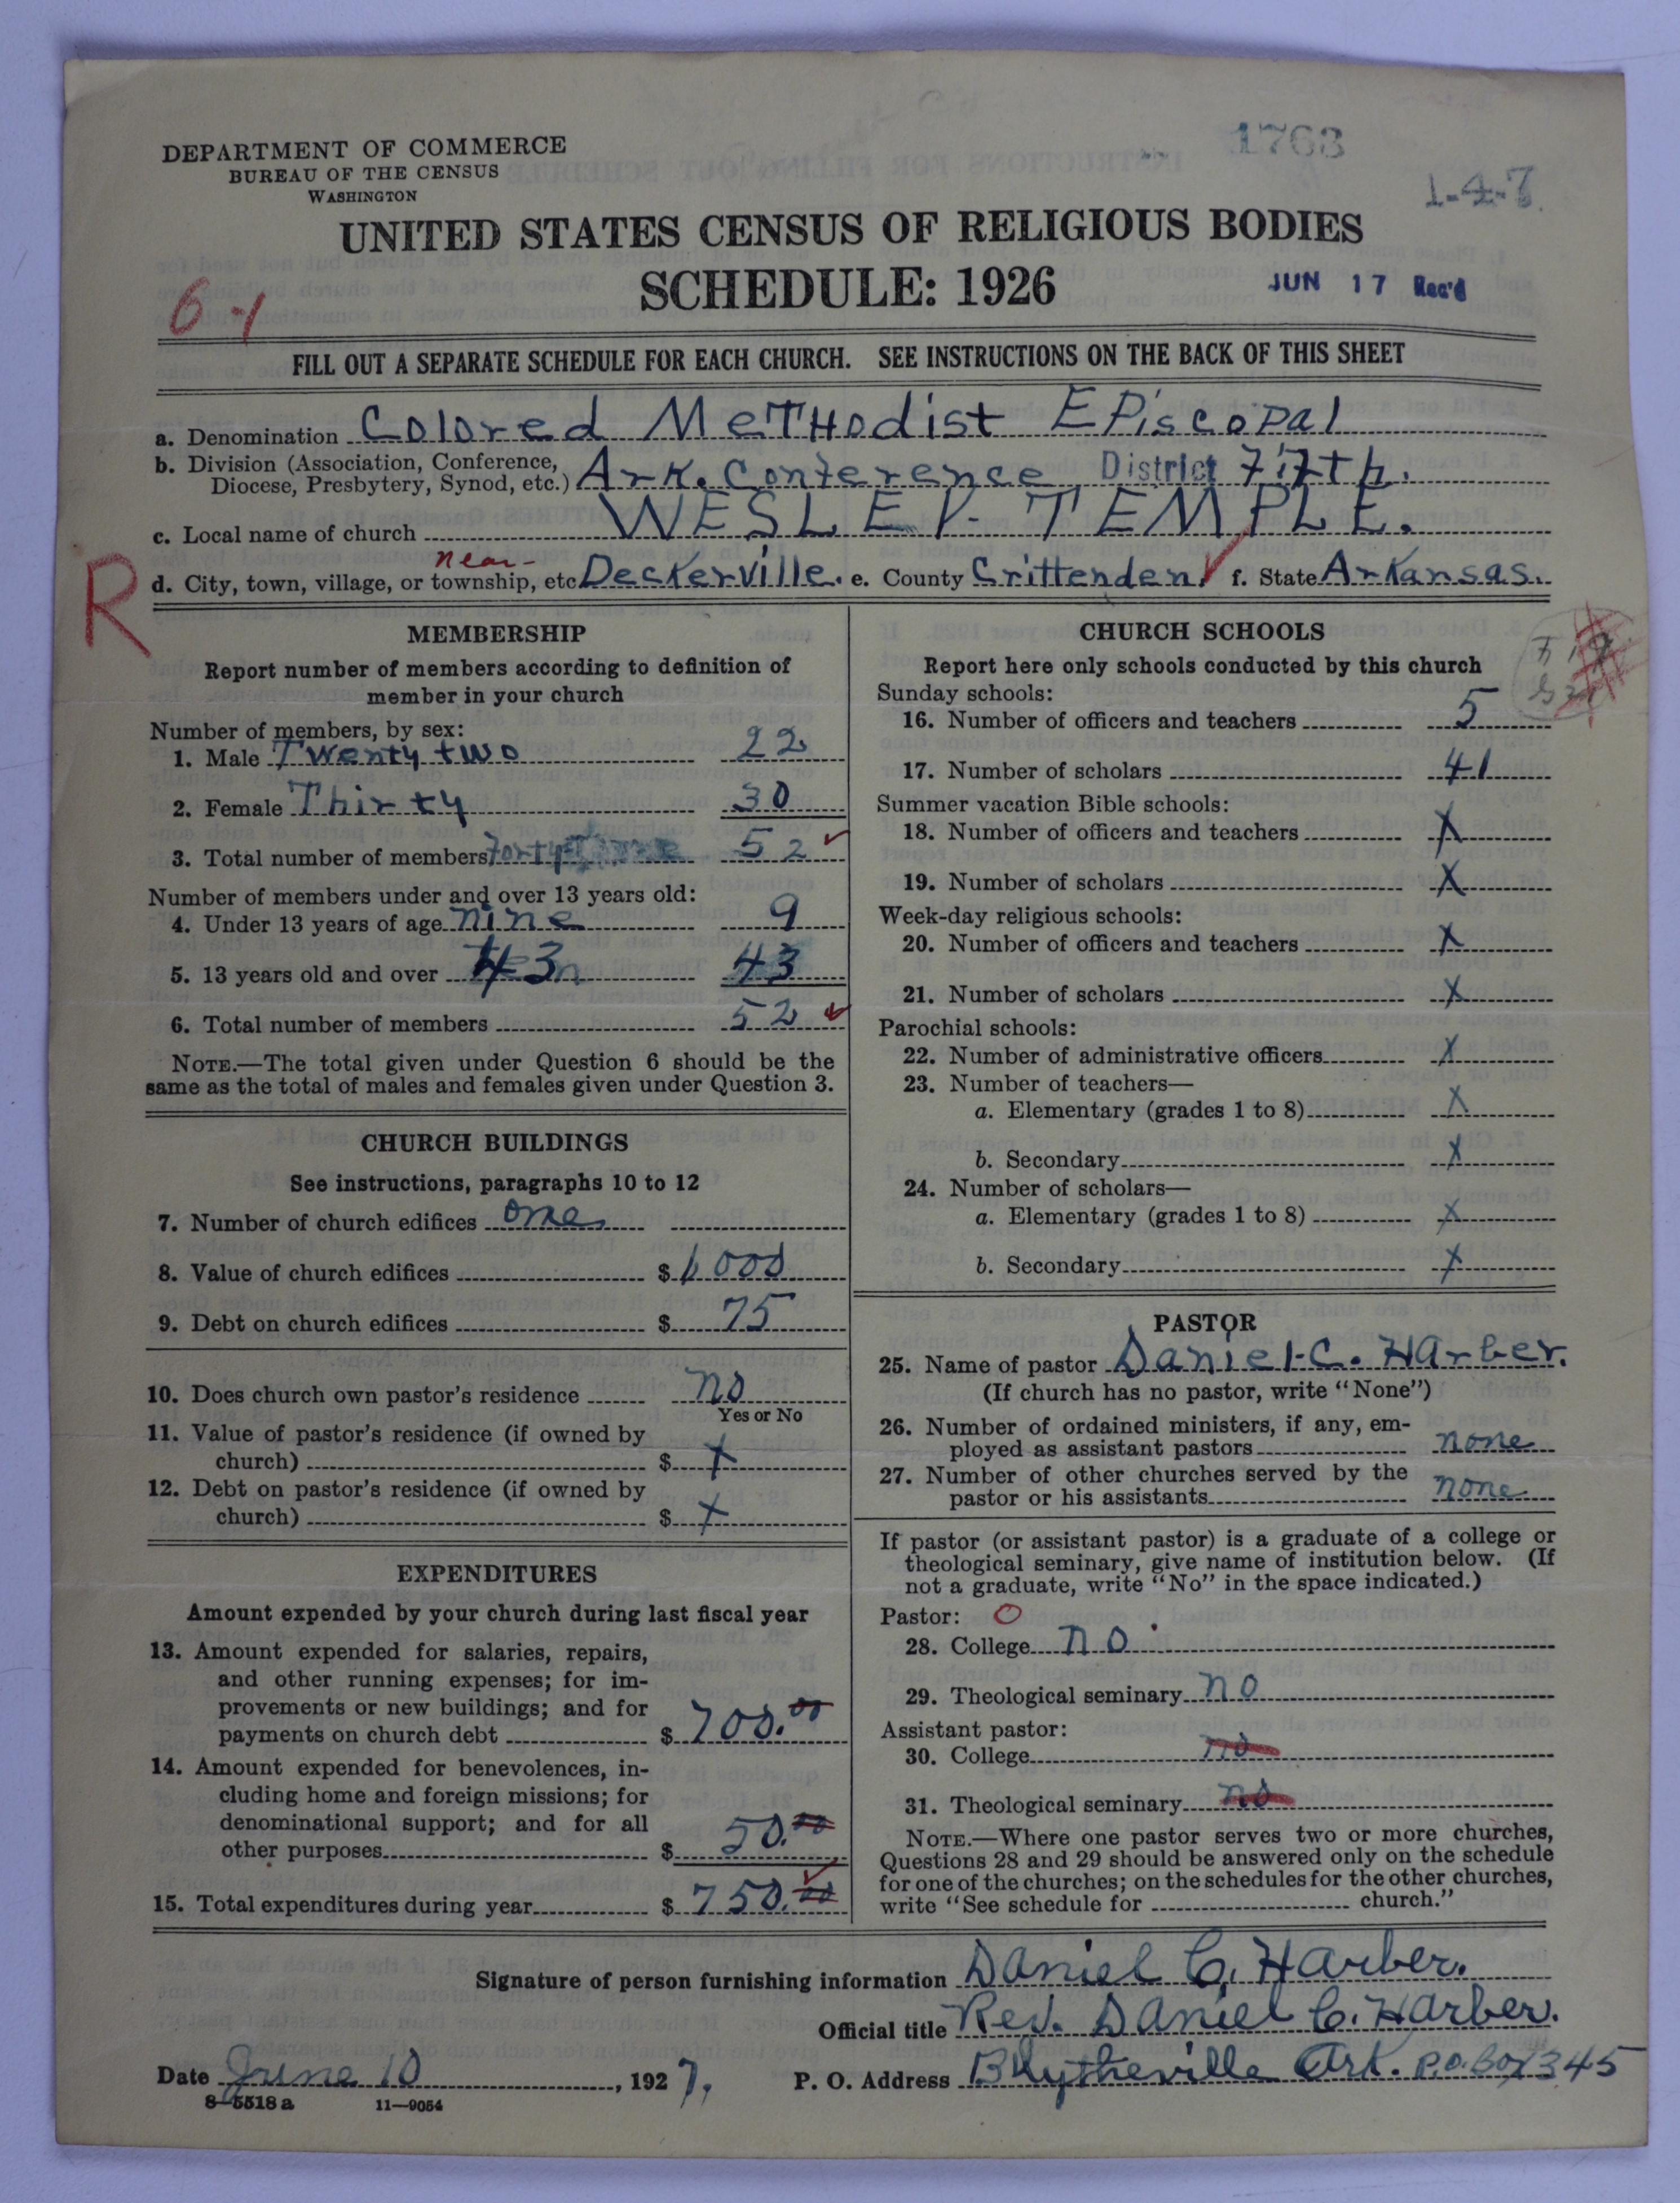 1763
DEPARTMENT OF COMMERCE
BUREAU OF THE CENSUS
WASHINGTON
1-4-7
UNITED STATES CENSUS OF RELIGIOUS BODIES
SCHEDULE: 1926
JUN 17 Rec'd
6-1
FILL OUT A SEPARATE SCHEDULE FOR EACH CHURCH. SEE INSTRUCTIONS ON THE BACK OF THIS SHEET
a. Denomination Colored Methodist Episcopal
b. Division (Association, Conference, Diocese, Presbytery, Synod, etc.) Ark. Conference District Fifth.
c. Local name of church WESLEY. TEMPLE.
R
near-
d. City, town, village, or township, etc Deckerville. e. County Crittenden f. State Arkansas.
MEMBERSHIP
Report number of members according to definition of
member in your church
Number of members, by sex:
1. Male Twenty two 22
2. Female Thirty 30
3. Total number of members 52
Number of members under and over 13 years old:
4. Under 13 years of age nine 9
5. 13 years old and over 43 43
6. Total number of members 52
NOTE.—The total given under Question 6 should be the
same as the total of males and females given under Question 3.
CHURCH BUILDINGS
See instructions, paragraphs 10 to 12
7. Number of church edifices one
8. Value of church edifices $ 1000
9. Debt on church edifices $ 75
10. Does church own pastor's residence no
Yes or No
11. Value of pastor's residence (if owned by
church) $ X
12. Debt on pastor's residence (if owned by
church) $ X
EXPENDITURES
Amount expended by your church during last fiscal year
13. Amount expended for salaries, repairs,
and other running expenses; for im-
provements or new buildings; and for
payments on church debt $ 700.00
14. Amount expended for benevolences, in-
cluding home and foreign missions; for
denominational support; and for all
other purposes $ 50.00
15. Total expenditures during year $ 750.00
CHURCH SCHOOLS
Report here only schools conducted by this church
Sunday schools:
16. Number of officers and teachers 5
17. Number of scholars 41
Summer vacation Bible schools:
18. Number of officers and teachers X
19. Number of scholars X
Week-day religious schools:
20. Number of officers and teachers X
21. Number of scholars X
Parochial schools:
22. Number of administrative officers X
23. Number of teachers—
a. Elementary (grades 1 to 8) X
b. Secondary X
24. Number of scholars—
a. Elementary (grades 1 to 8) X
b. Secondary X
PASTOR
25. Name of pastor Daniel C. Harber.
(If church has no pastor, write "None")
26. Number of ordained ministers, if any, em-
ployed as assistant pastors none
27. Number of other churches served by the
pastor or his assistants none
If pastor (or assistant pastor) is a graduate of a college or
theological seminary, give name of institution below. (If
not a graduate, write "No" in the space indicated.)
Pastor: O
28. College no
29. Theological seminary no
Assistant pastor:
30. College no
31. Theological seminary no
NOTE.—Where one pastor serves two or more churches,
Questions 28 and 29 should be answered only on the schedule
for one of the churches; on the schedules for the other churches,
write "See schedule for church."
Signature of person furnishing information Daniel C. Harber.
Official title Rev. Daniel C. Harber.
Date June 10, 1927. P. O. Address Blytheville Ark. P.O. Box 345
8-5518a 11-9054